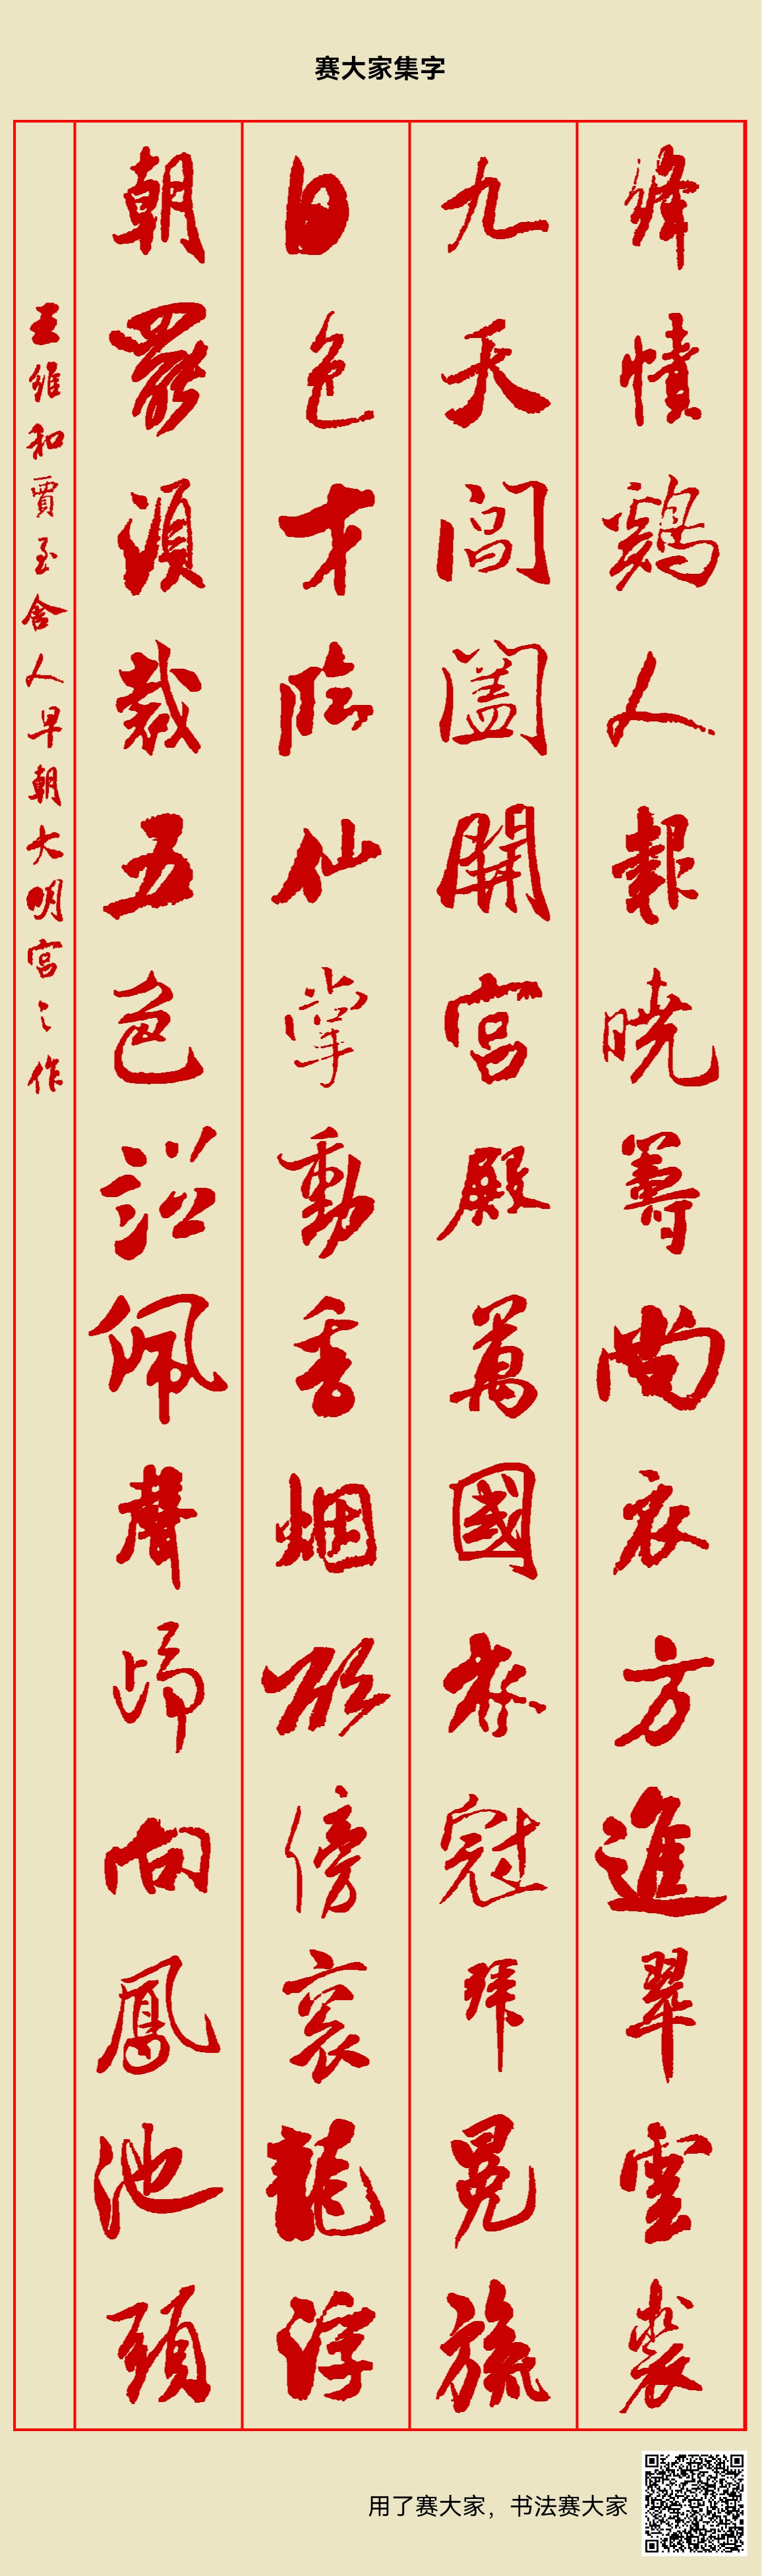 赛大家集字
絳幘鷄人報曉籌尚衣方進翠雲裘
九天閶闔開宮殿萬國衣冠拜冕旒
日色才臨仙掌動香烟欲傍衮龍浮
朝罷須裁五色詔佩聲歸向鳳池頭
王維和賈至舍人早朝大明宮之作
用了赛大家，书法赛大家